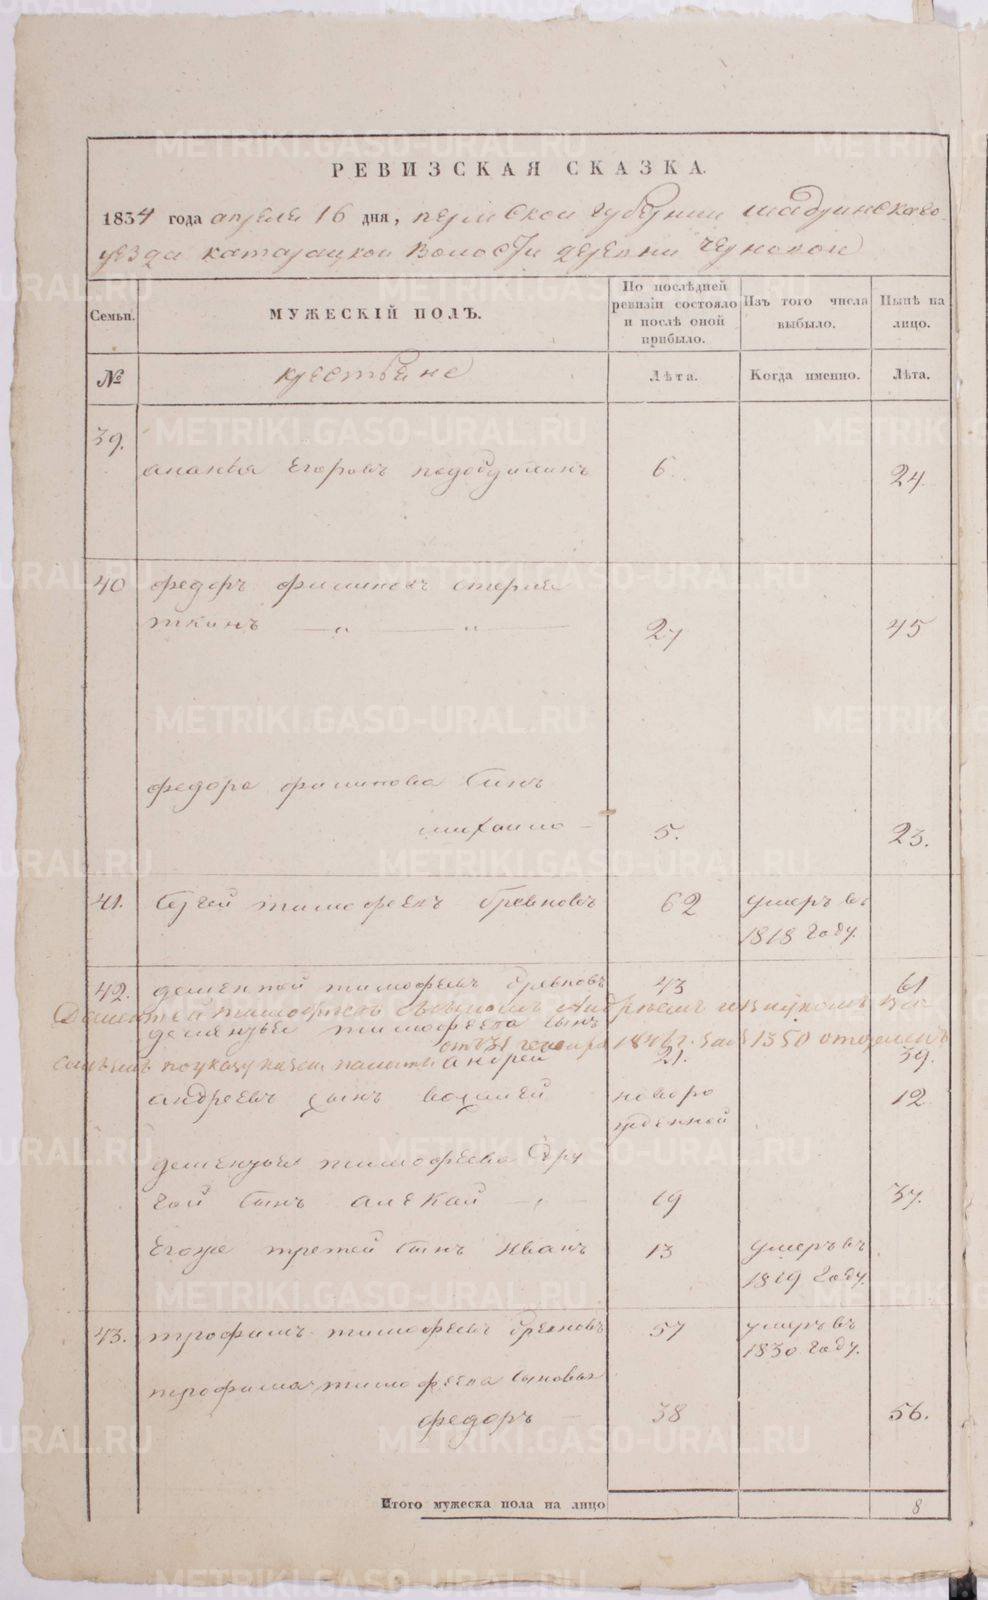 РЕВИЗСКАЯ СКАЗКА.
1834 года апреля 16 дня, пермской губернии шадринскаго
уезда катайской волости деревни черновой
Семьи.
МУЖЕСКІЙ ПОЛЪ.
По послѣдней ревизіи состояло и послѣ оной прибыло.
Изъ того числа выбыло.
Нынѣ на лицо.
№
крестьяне
Лѣта.
Когда именно.
Лѣта.
39.
ананья Егоровъ 6 24.
40 федоръ филиповъ
27 45
федора филипова сынъ
михаило 5. 23.
41. Сергей тимофеевъ бревновъ 62 умеръ въ
1818 году.
42. дементей тимофеевъ бревновъ 43 61
Дементей тимофеевъ съ сыномъ Андреемъ и внукомъ
дементья тимофеева сынъ
1846 г. за № 1350 отделенъ
по указу казен палаты
андрей 21. 39.
андреевъ сынъ новоро 12
жденной
дементья тимофеева дру
гой сынъ алексей 19 37.
Егоже третей сынъ иванъ 13 умеръ въ
1819 году.
43. трофимъ тимофеевъ бревновъ 57 умеръ въ
1830 году.
трофима тимофеева сыновья
федоръ 38 56.
Итого мужеска пола на лицо 8
METRIKI.GASO-URAL.RU